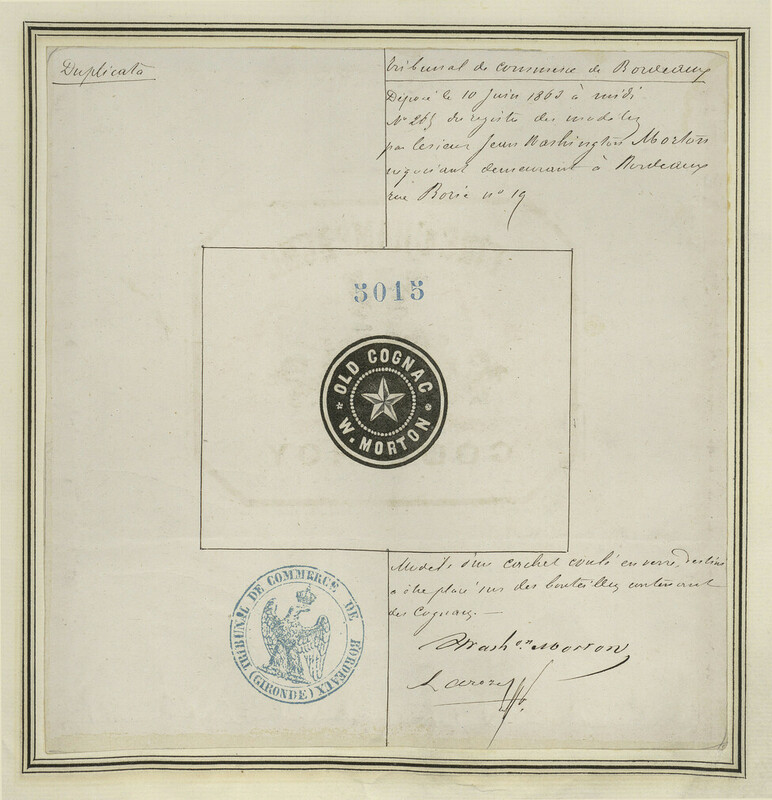 Duplicata
Tribunal de commerce de Bordeaux
Déposé le 10 Juin 1863 à midi
N° 265 du registre des modèles
par le sieur Jean Washington Morton
négociant demeurant à Bordeaux
rue Borie n° 19
5015
OLD COGNAC
W. MORTON
Modèle d'un cachet coulé en verre, destiné
à être placé sur des bouteilles contenant
des Cognacs. —
TRIBUNAL DE COMMERCE DE BORDEAUX
(GIRONDE)
Wash.on Morton